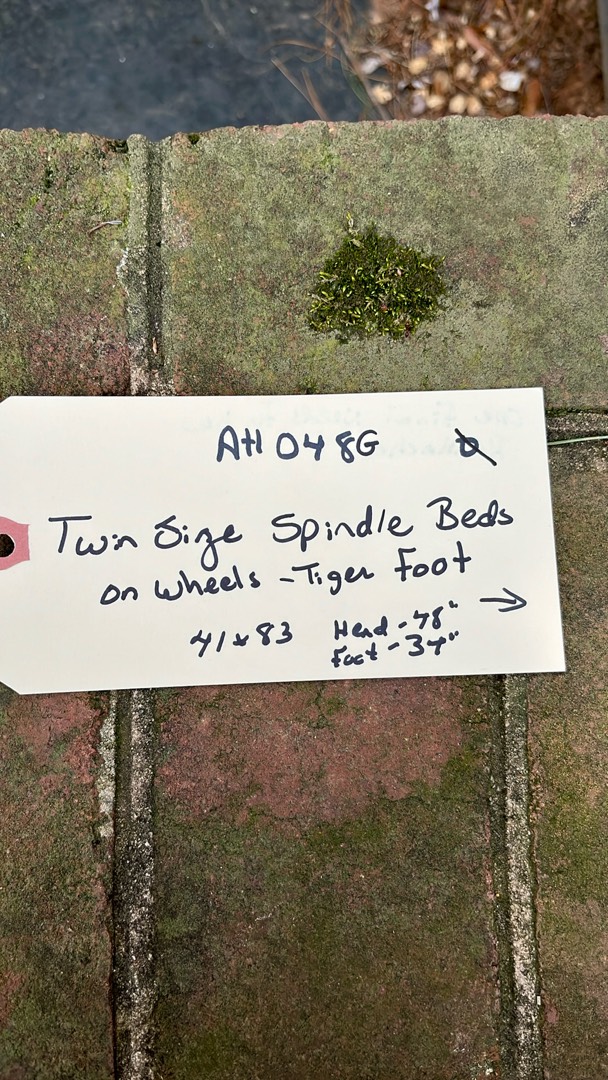 AH 048G
Twin Size Spindle Beds
on wheels - Tiger Foot
41x83 Head - 48"
Foot - 34"